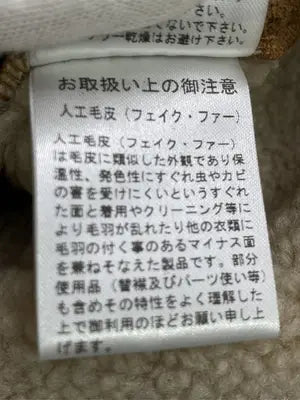 さい。
ないで下さい。
ブラー乾燥はお避け下さい。
お取扱い上の御注意
人工毛皮（フェイク・ファー）
人工毛皮（フェイク・ファー）
は毛皮に類似した外観であり保
温性、発色性にすぐれ虫やカビ
の害を受けにくいというすぐれ
た面と着用やクリーニング等に
より毛羽が乱れたり他の衣類に
毛羽の付く事のあるマイナス面
を兼ねそなえた製品です。部分
使用品（替襟及びパーツ使い等）
も含めその特性をよく理解した
上で御利用のほどお願い申し上
げます。